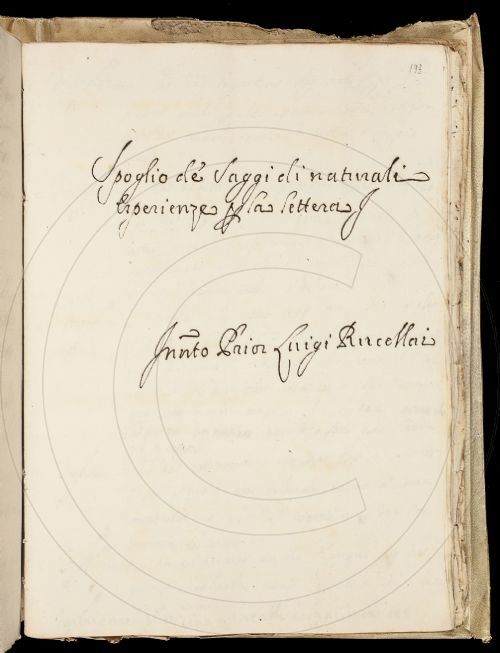 193
Spoglio de Saggi di naturali
Esperienze p la lettera J
Innto Prior Luigi Rucellai